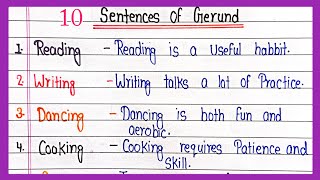 10 Sentences of Gerund
1. Reading - Reading is a useful habbit.
2. Writing - Writing talks a lot of Practice.
3. Dancing - Dancing is both fun and
aerobic.
4. Cooking - Cooking requires Patience and
skill.